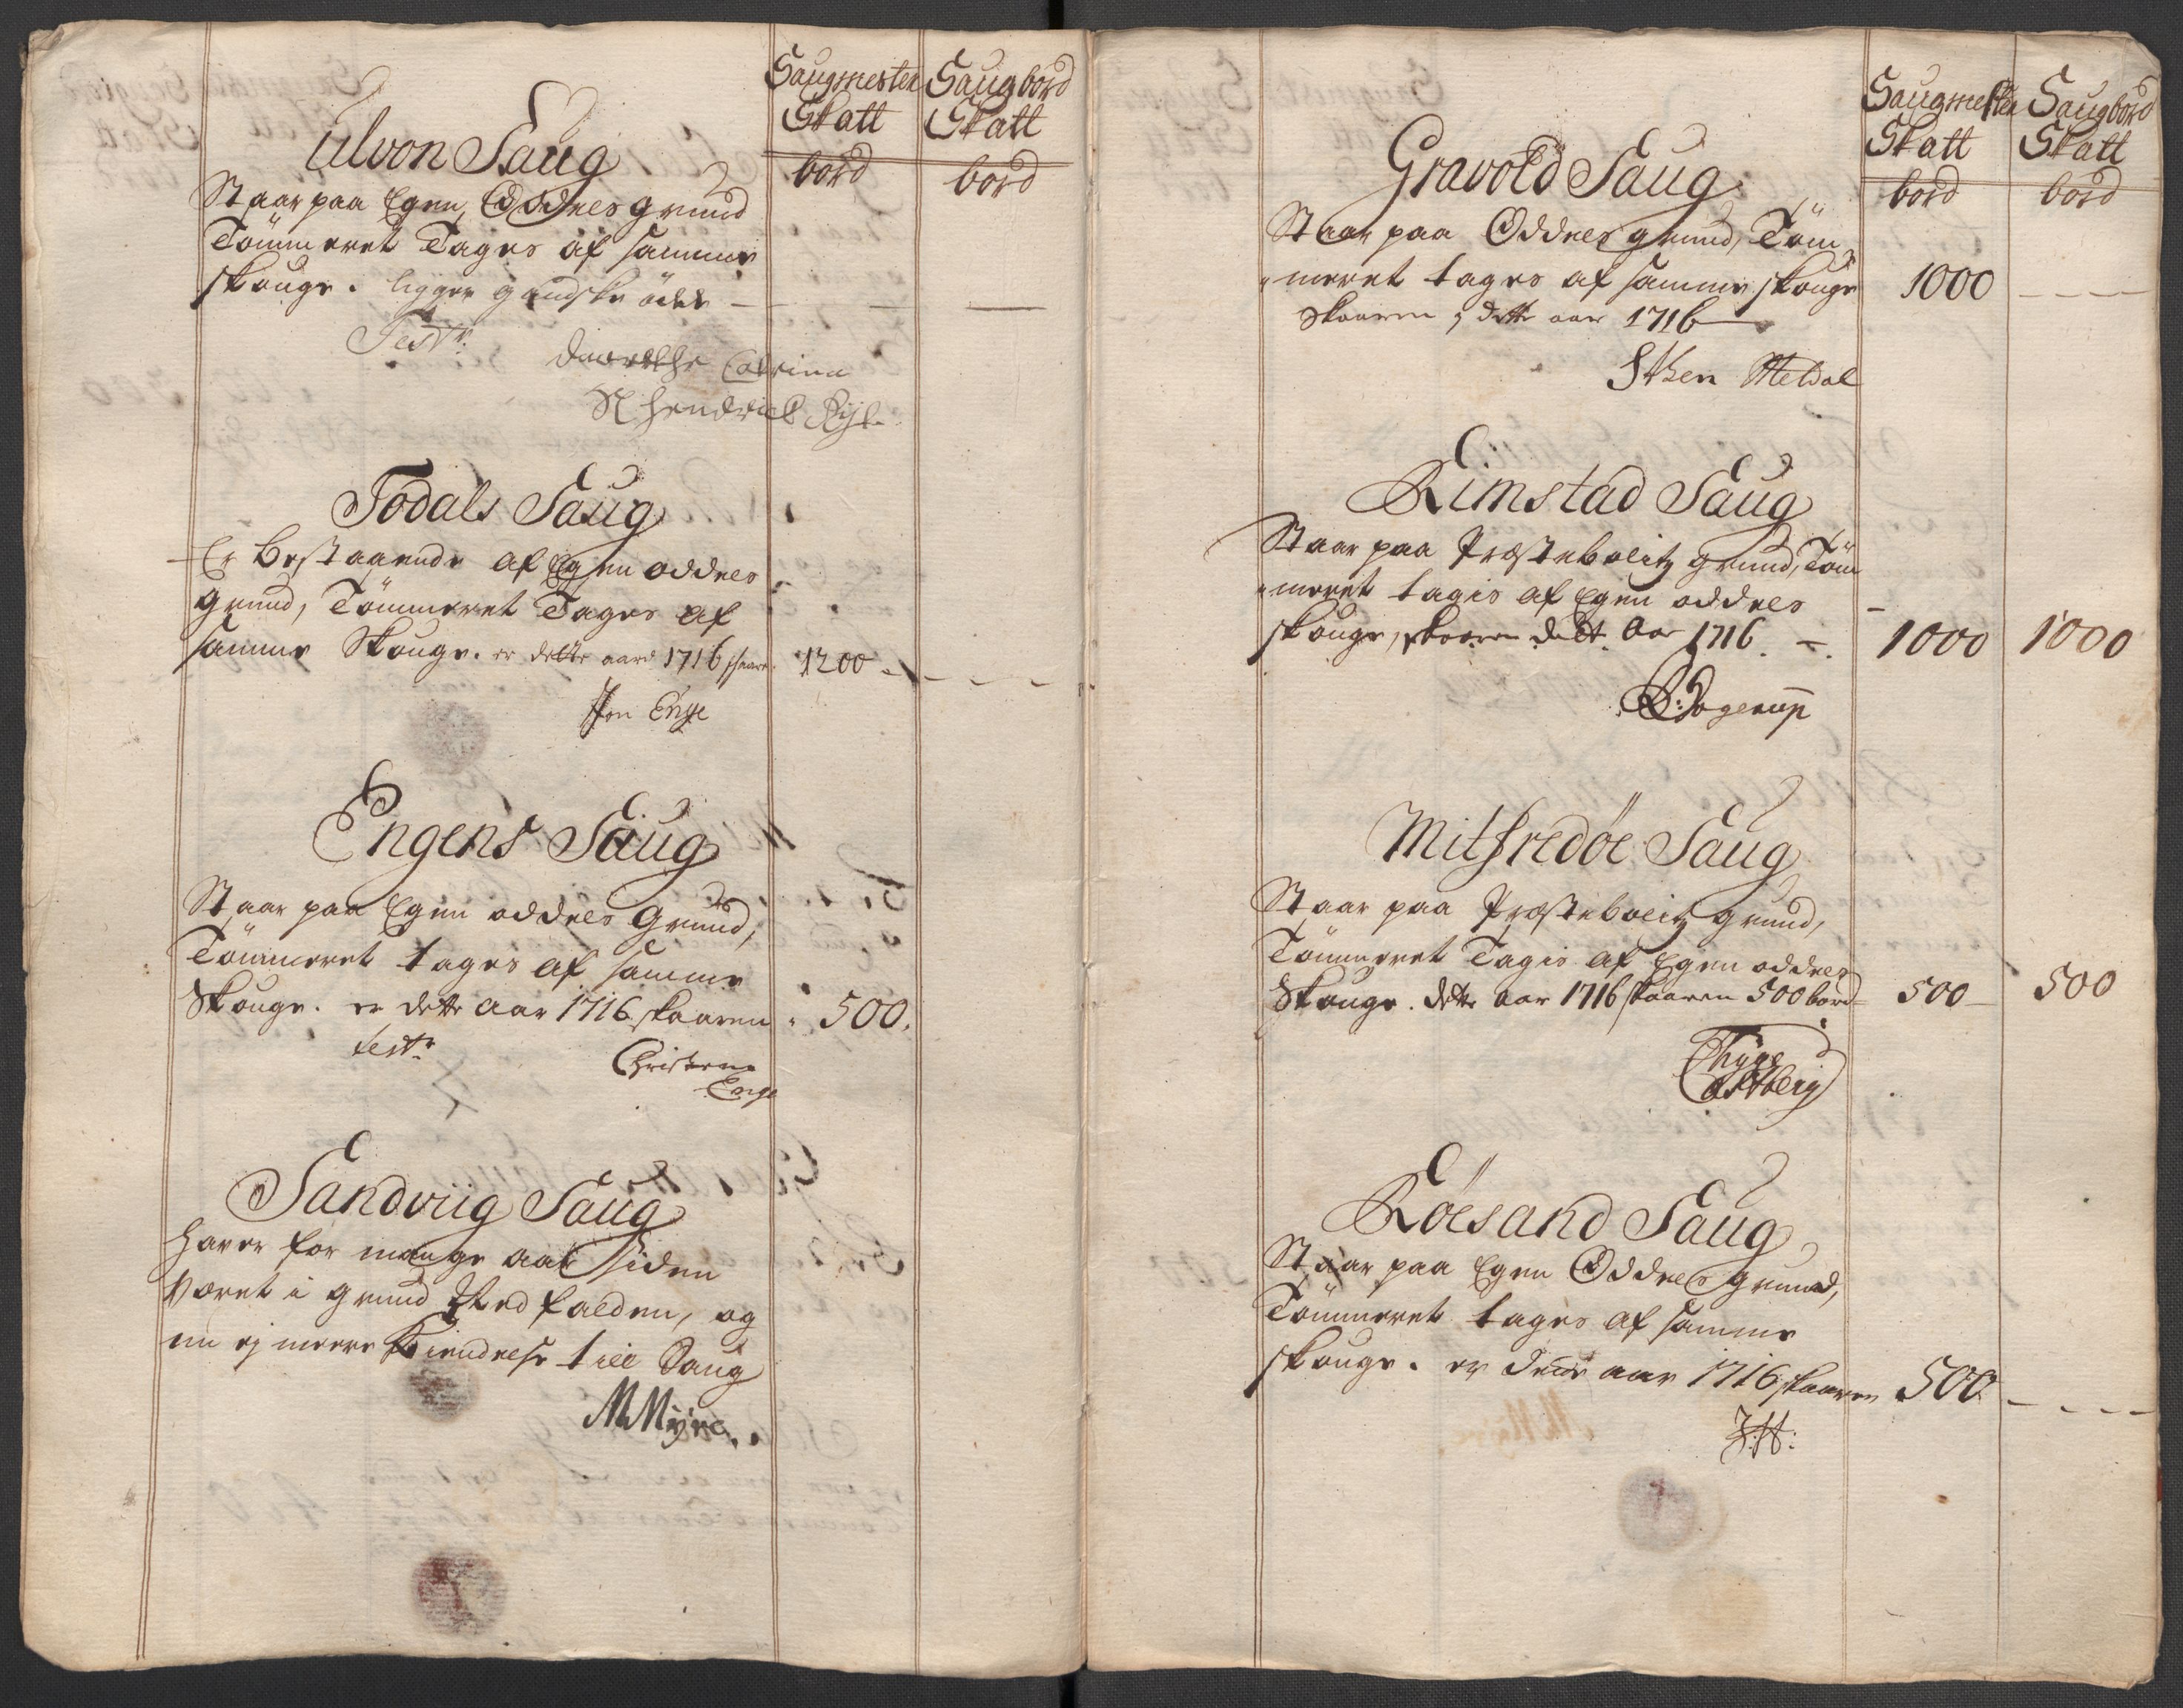 Saugmester Saugbord
Skatt Skatt
bord bord
Ulvon Saug
Staar paa Egen Oddels grund
Tömmeret Tages af samme
skouge. ligger gandske öde — — —
Test:
Catrina
Sl Hendrich
Todals Saug
Er bestaaende af Egen oddels
grund, Tömmeret Tages af
samme Skouge. er dette aar 1716 skaaren 1200
Jon Enge
Engens Saug
Staar paa Egen oddels Grund,
Tömmeret tages af samme
Skouge. er dette Aar 1716 skaaren 500.
test:
Christen
Enge
Sandviig Saug
haver for mange aar siden
veret i grund Ned falden, og
nu ej meere Kiendelse till Saug
M Myre.
Saugmester Saugbord
Skatt Skatt
bord bord
Gravold Saug
Staar paa Oddels grund, Töm
meret tages af samme skouge 1000
Skaaren i dette aar 1716
Sthen Meldal
Rimstad Saug
Staar paa Præstebolitz grund, Töm
meret tagis af Egen oddels
skouge, skaaren dett Aar 1716. 1000 1000
Mitfredöe Saug
Staar paa Præstebolitz grund,
Tömmeret Tagis af Egen oddels
Skouge. dette aar 1716 skaaren 500 bord 500 500
Thyge
Castberg
Röesand Saug
Staar paa Egen Oddels grund,
Tömmeret tages af samme
skouge. er dette aar 1716 skaaren 500
J:H: